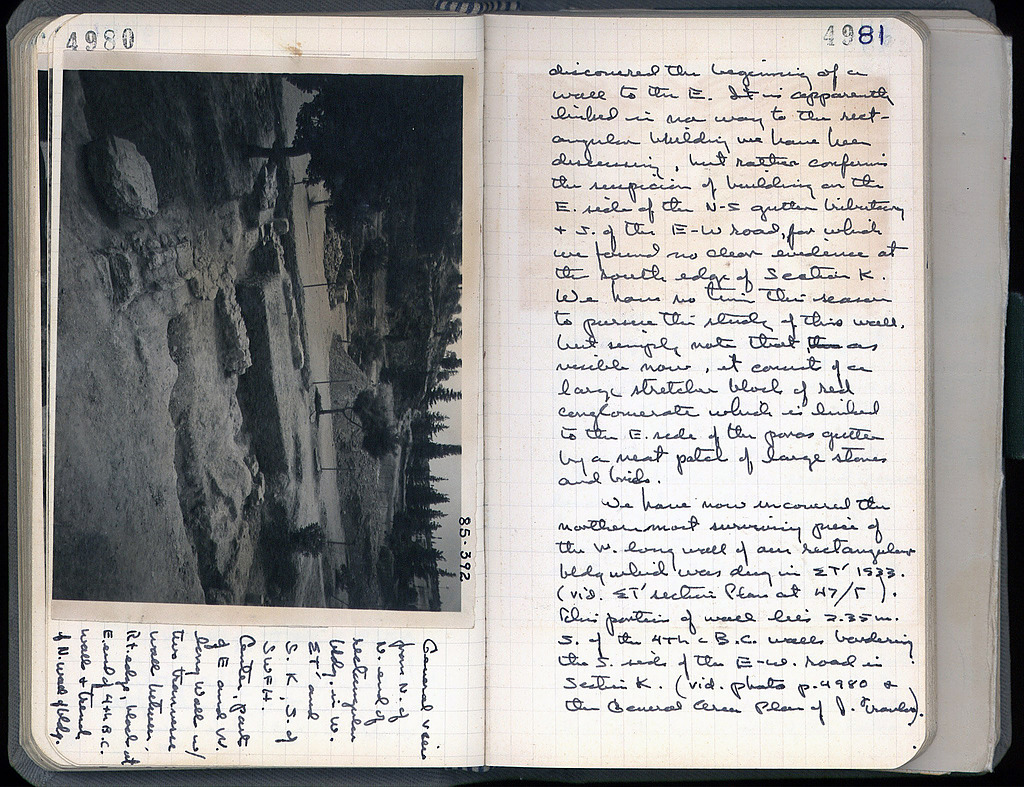 4980
85-392
General view
from N. of
N. end of
rectangular
bldg. in W.
ΣT' and
S. K, S. of
SWFH.
Center, parts
of E and W.
long wall w/
two transverse
walls between,
Rt. edge, block at
E. end of 4th B.C.
wall & trend
of N. wall of bldg.
4981
discovered the beginning of a
wall to the E. It is apparently
linked in no way to the rect-
angular building we have been
discussing, but rather confirms
the suspicion of building on the
E. side of the N-S gutter tributary
+ S. of the E-W road, for which
we found no clear evidence at
the south edge of Section K.
We have no time this season
to pursue the study of this wall,
but simply note that, as
visible now, it consist of a
large stretcher block of red
conglomerate which is linked
to the E. side of the poros gutter
by a neat patch of large stones
and bricks.
We have now uncovered the
northernmost surviving piece of
the W. long wall of our rectangular
bldg which was dug in ΣT' 1933.
(vid. ΣT' section Plan at 47/5 ).
This portion of wall lies 2.35 m.
S. of the 4th c B.C. walls bordering
the S. side of the E-W. road in
Section K. (vid. photo p. 4980 &
the General Area Plan of J. Travlos).